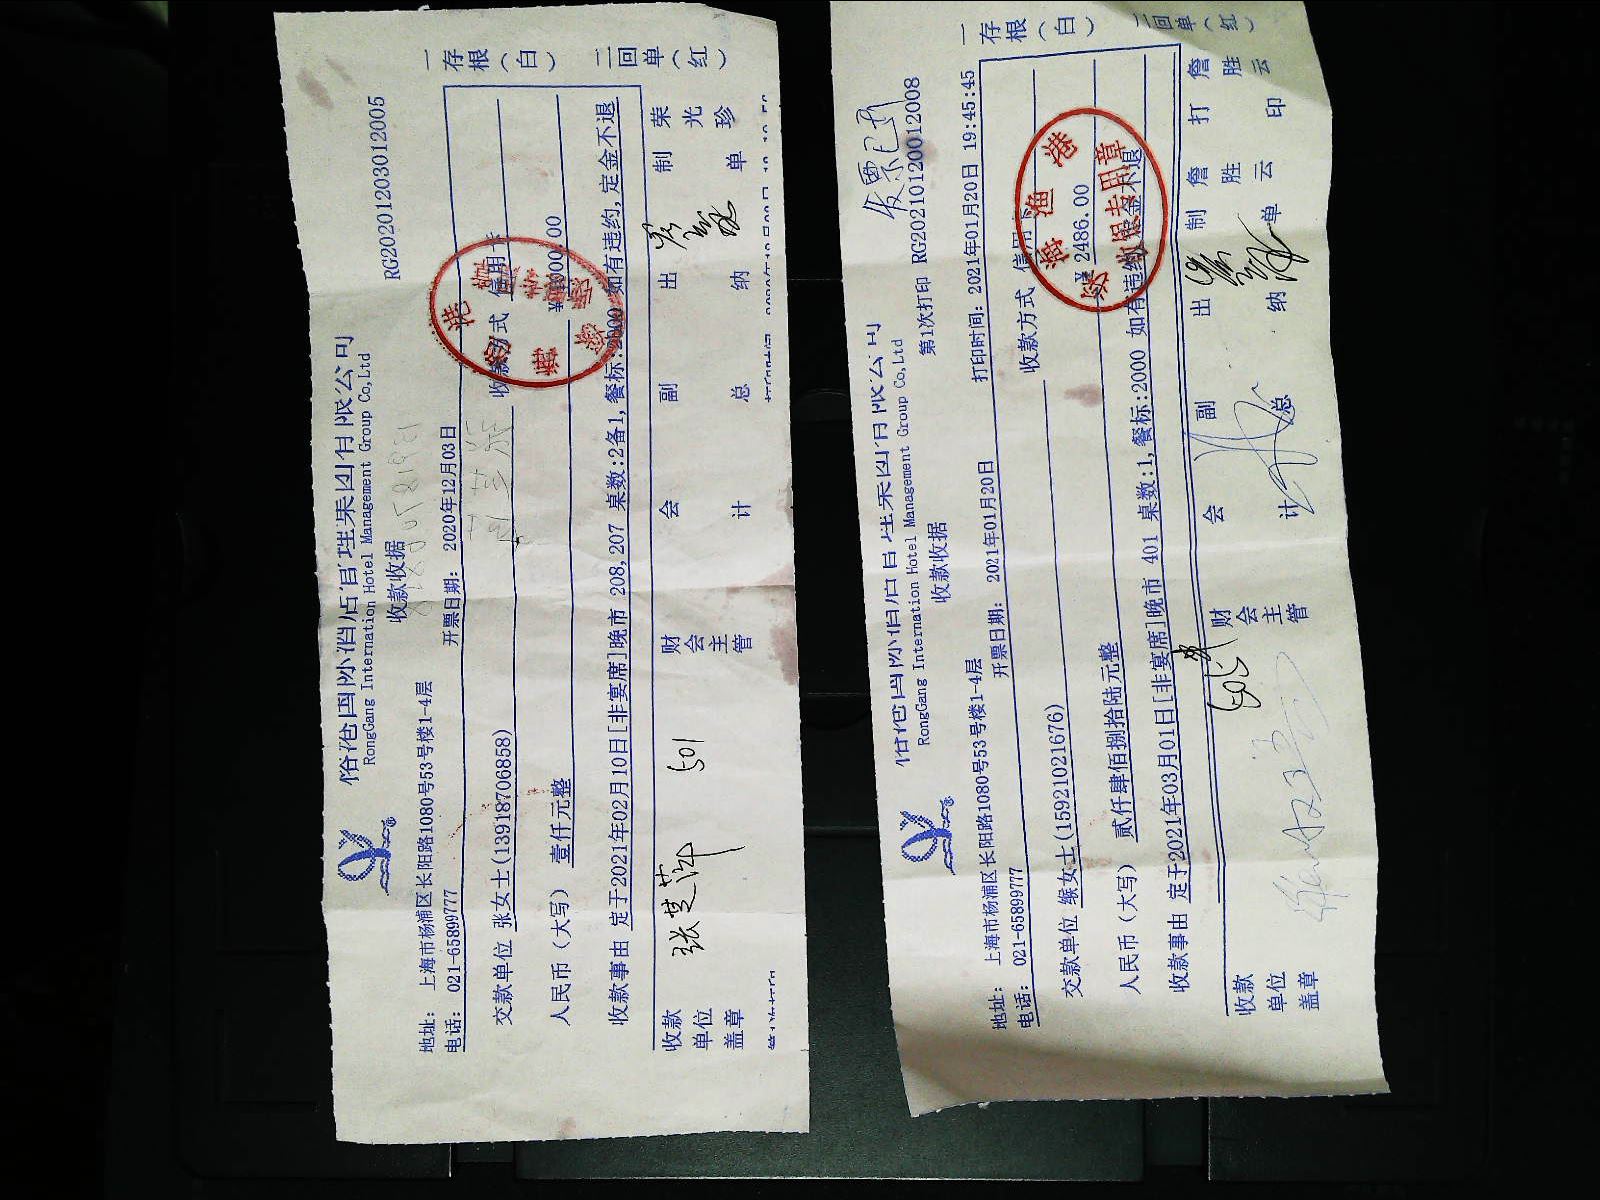 一存根(白)
二回单(红)
RG20201203012005
国际酒店管理集团有限公司
RongGang Internation Hotel Management Group Co,Ltd
收款收据
地址: 上海市杨浦区长阳路1080号53号楼1-4层
电话: 021-65899777
开票日期: 2020年12月03日
交款单位 张女士(13918706858)
收款方式 信用卡
人民币(大写) 壹仟元整
收款事由 定于2021年02月10日[非宴席]晚市 208,207 桌数:2备1,餐标:2000 如有违约,定金不退
收款单位盖章
张芝萍
501
财会主管
会计
副总
出纳
制单
荣光珍
一存根(白)
二回单(红)
发票已开
国际酒店管理集团有限公司
RongGang Internation Hotel Management Group Co,Ltd
第1次打印 RG20210120012008
收款收据
地址: 上海市杨浦区长阳路1080号53号楼1-4层
电话: 021-65899777
开票日期: 2021年01月20日
打印时间: 2021年01月20日 19:45:45
交款单位 缑女士(15921021676)
收款方式 信用卡
人民币(大写) 贰仟肆佰捌拾陆元整
¥ 2486.00
收款事由 定于2021年03月01日[非宴席]晚市 401 桌数:1,餐标:2000 如有违约,定金不退
收款单位盖章
财会主管
会计
副总
出纳
制单
詹胜云
打印
詹胜云